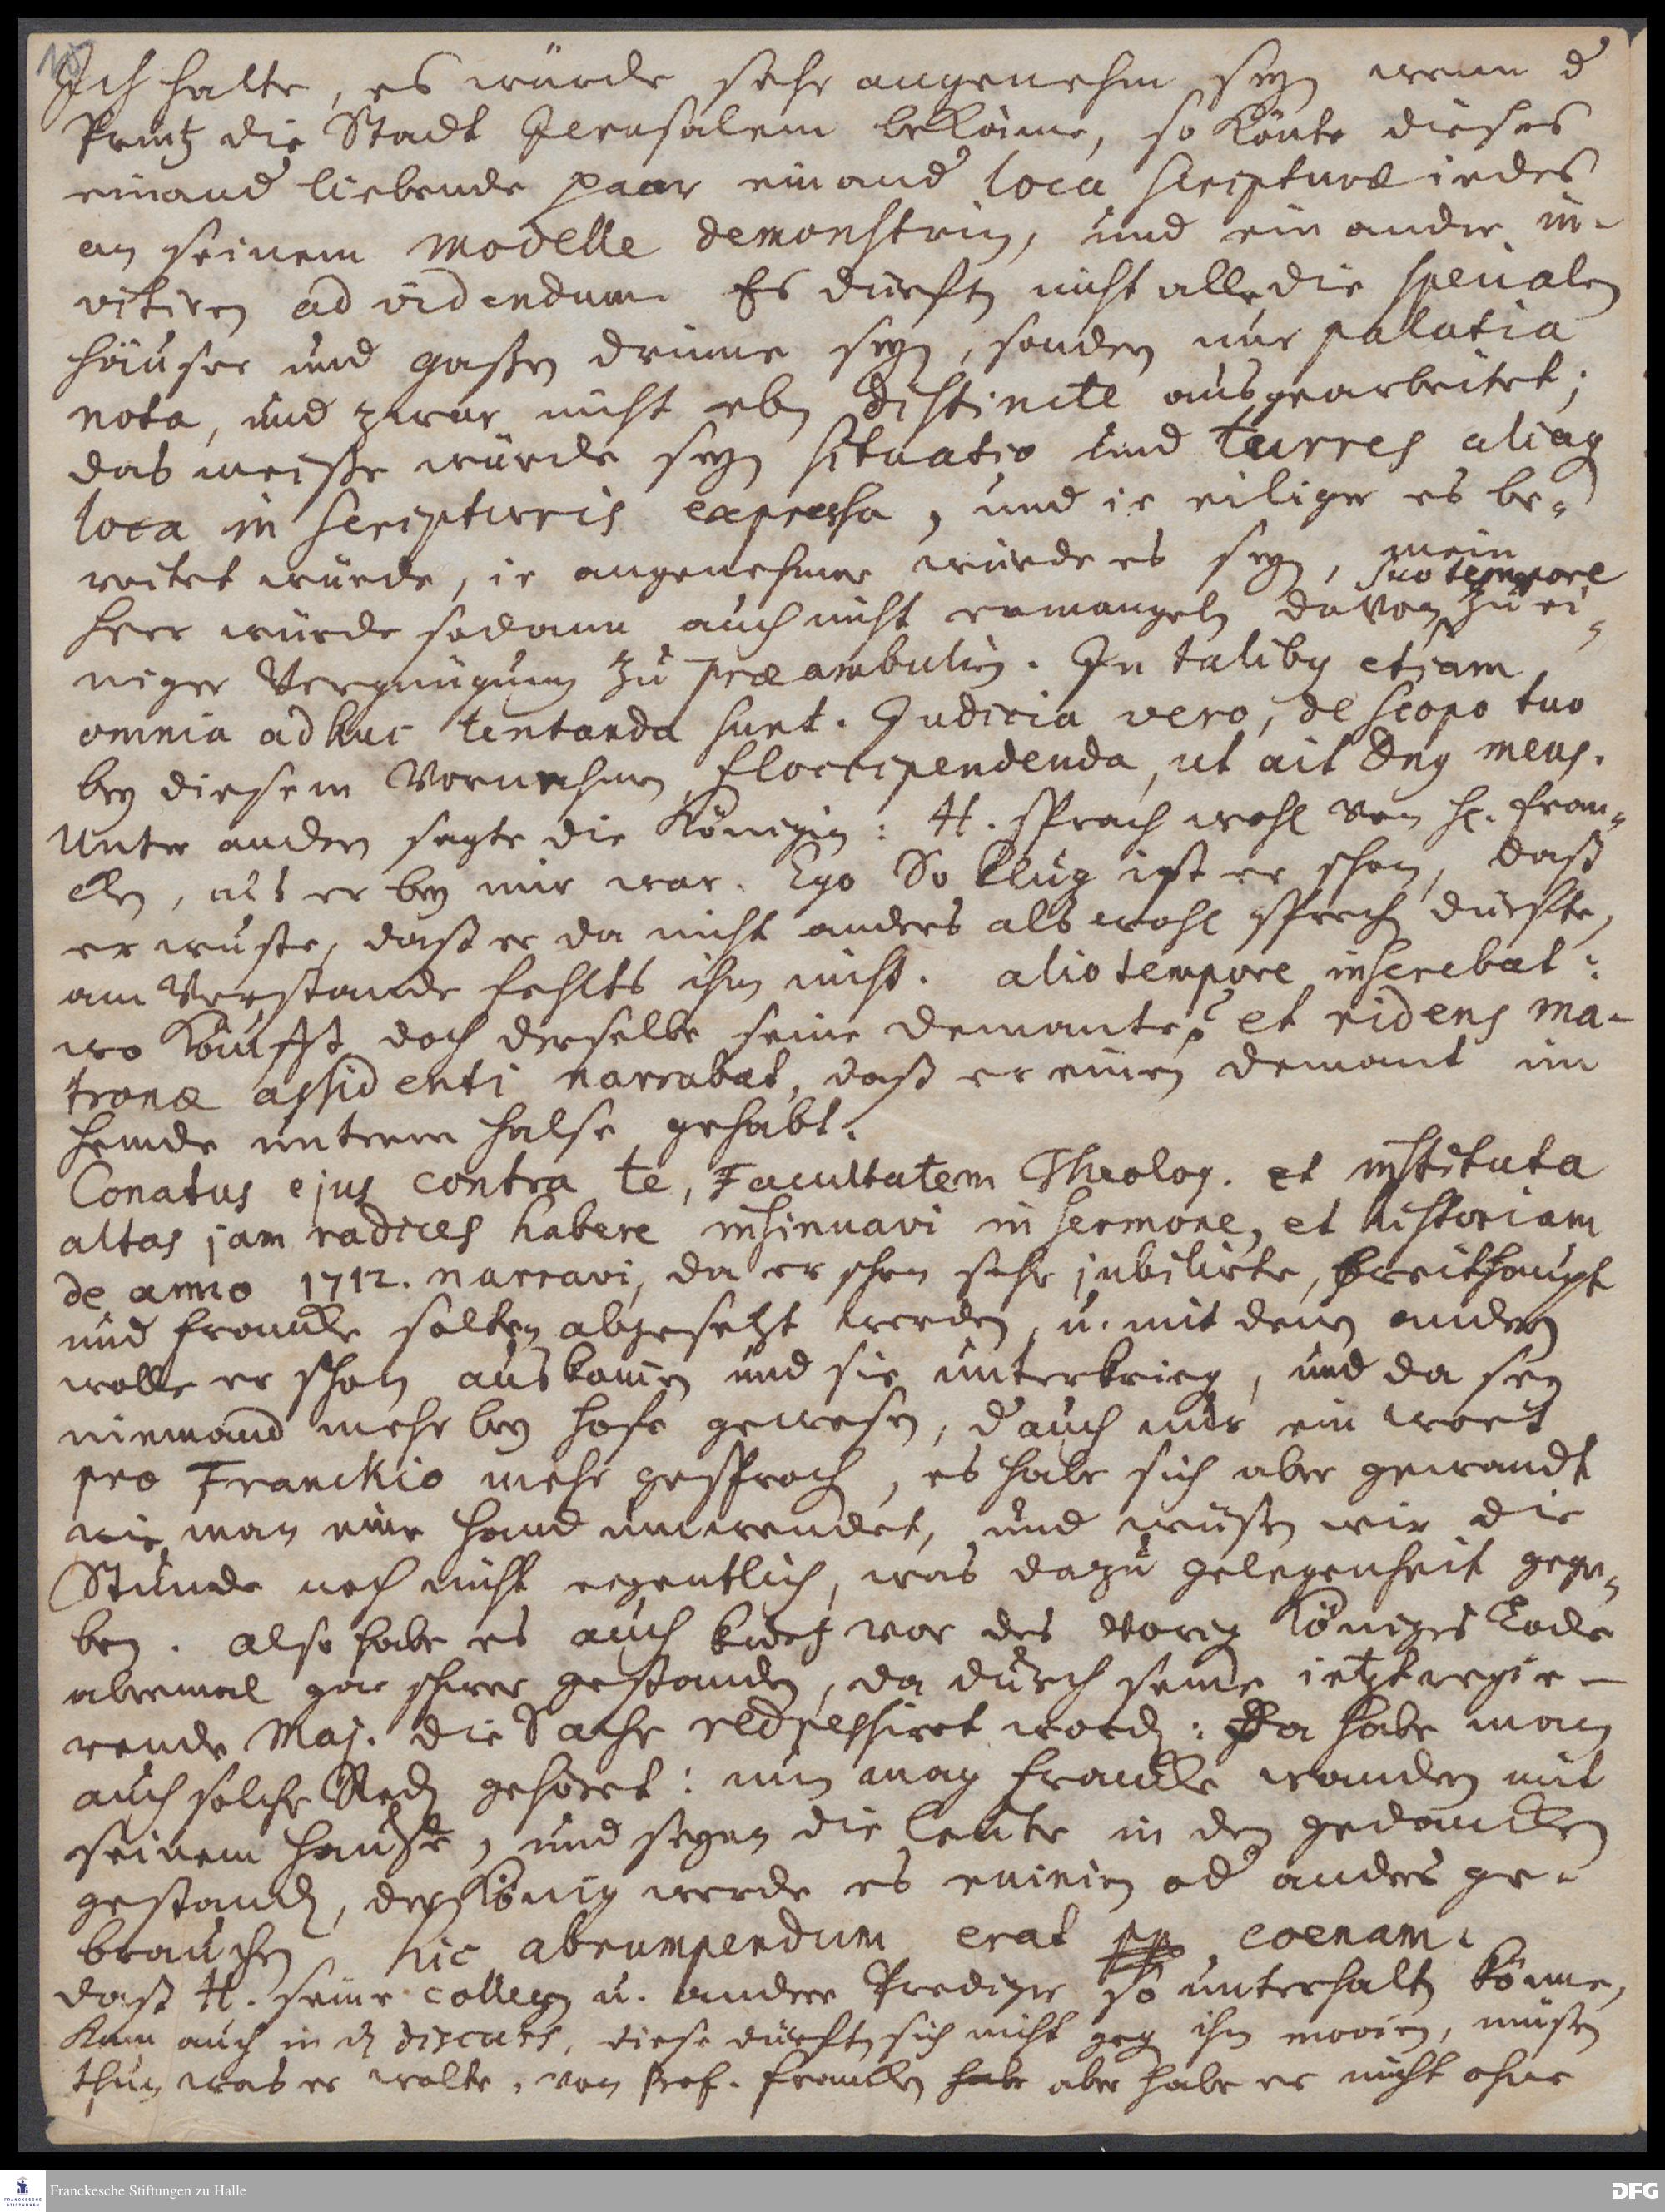 Ich halte, es würde sehr angenehm seyn wenn d
Printz die Stadt Jerusalem bekäme, so könte dieses
einand liebende paar einand loca scripturæ iedes
an seinem Modelle demonstriren, und ein ander in-
vitiren ad videndum. Es dürften nicht alle die specialen
häuser und gaßen drinne seyn, sondern nur palatia
nota, und zwar nicht eben distincte ausgearbeitet;
das meiste würde seyn situatio und turres aliaq
loca in scripturis expressa, und ie eiliger es be-
reitet würde, ie angenehmer würde es seyn, mein
suo tempore
Herr würde sodann auch nicht ermangeln davon zu ei-
niger Vergnügung zu præambuliren. In talibus etiam
omnia adhuc tentanda sunt. Judicia vero, de scopo tuo
bey diesem Vornehmen floccipendenda, ut ait Dnus meus.
Unter andern sagte die Königin: H. sprach wohl von H. Fran-
cken, als er bey mir war. Ego So klug ist er schon, daß
er wuste, daß er da nicht anders als wohl sprechen durfte,
am Verstande fehlts ihm nicht. alio tempore inserebat:
wo kauffst doch derselbe seine Demante? et ridens ma-
tronæ assidenti narrabat, daß er einen Demant im
Hemde unterm Halse gehabt.
Conatus ejus contra te, Facultatem Theolog. et instituta
altas jam radices habere insinuavi in sermone, et historiam
de anno 1712. narravi, da er schon sehr jubilirte, Breithaupt
und Francke solten abgesetzt werden, u. mit den andern
wolle er schon auskomen und sie unterkriegen, und da sey
niemand mehr bey Hofe gewesen, d auch nur ein wort
pro Franckio mehr gesprochen, es habe sich aber gewandt
wie man eine Hand umwendet, und wüsten wir die
Stunde noch nicht eigentlich, was dazu gelegenheit gege-
ben. Also habe es auch kurtz vor des vorigen Königes Tode
abermal gar schwer gestanden, da durch seine ietzt regie-
rende Maj. die Sache redressiret worden: Da habe man
auch solche Reden gehöret: nun mag Francke wandern mit
seinem Hause, und seyen die Leute in den gedancken
gestanden, der König werde es ruiniren od anders ge-
brauchen. hic abrumpendum erat pp coenam.
daß H. seine collegen u. andere Prediger so unterhalten könne,
kam auch in den discurs, diese dürften sich nicht gegen ihn moviren, müsten
thun was er wolte, von Prof. Francken habe aber habe er nicht ohne
Franckesche Stiftungen zu Halle
FRANCKESCHE STIFTUNGEN
DFG